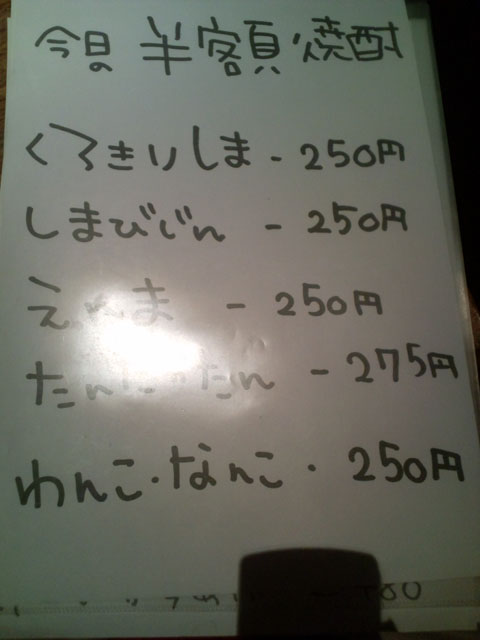 今日の 半額焼酎
くろきりしま - 250円
しまびじん - 250円
えんま - 250円
- 275円
わんこ・なんこ・ 250円